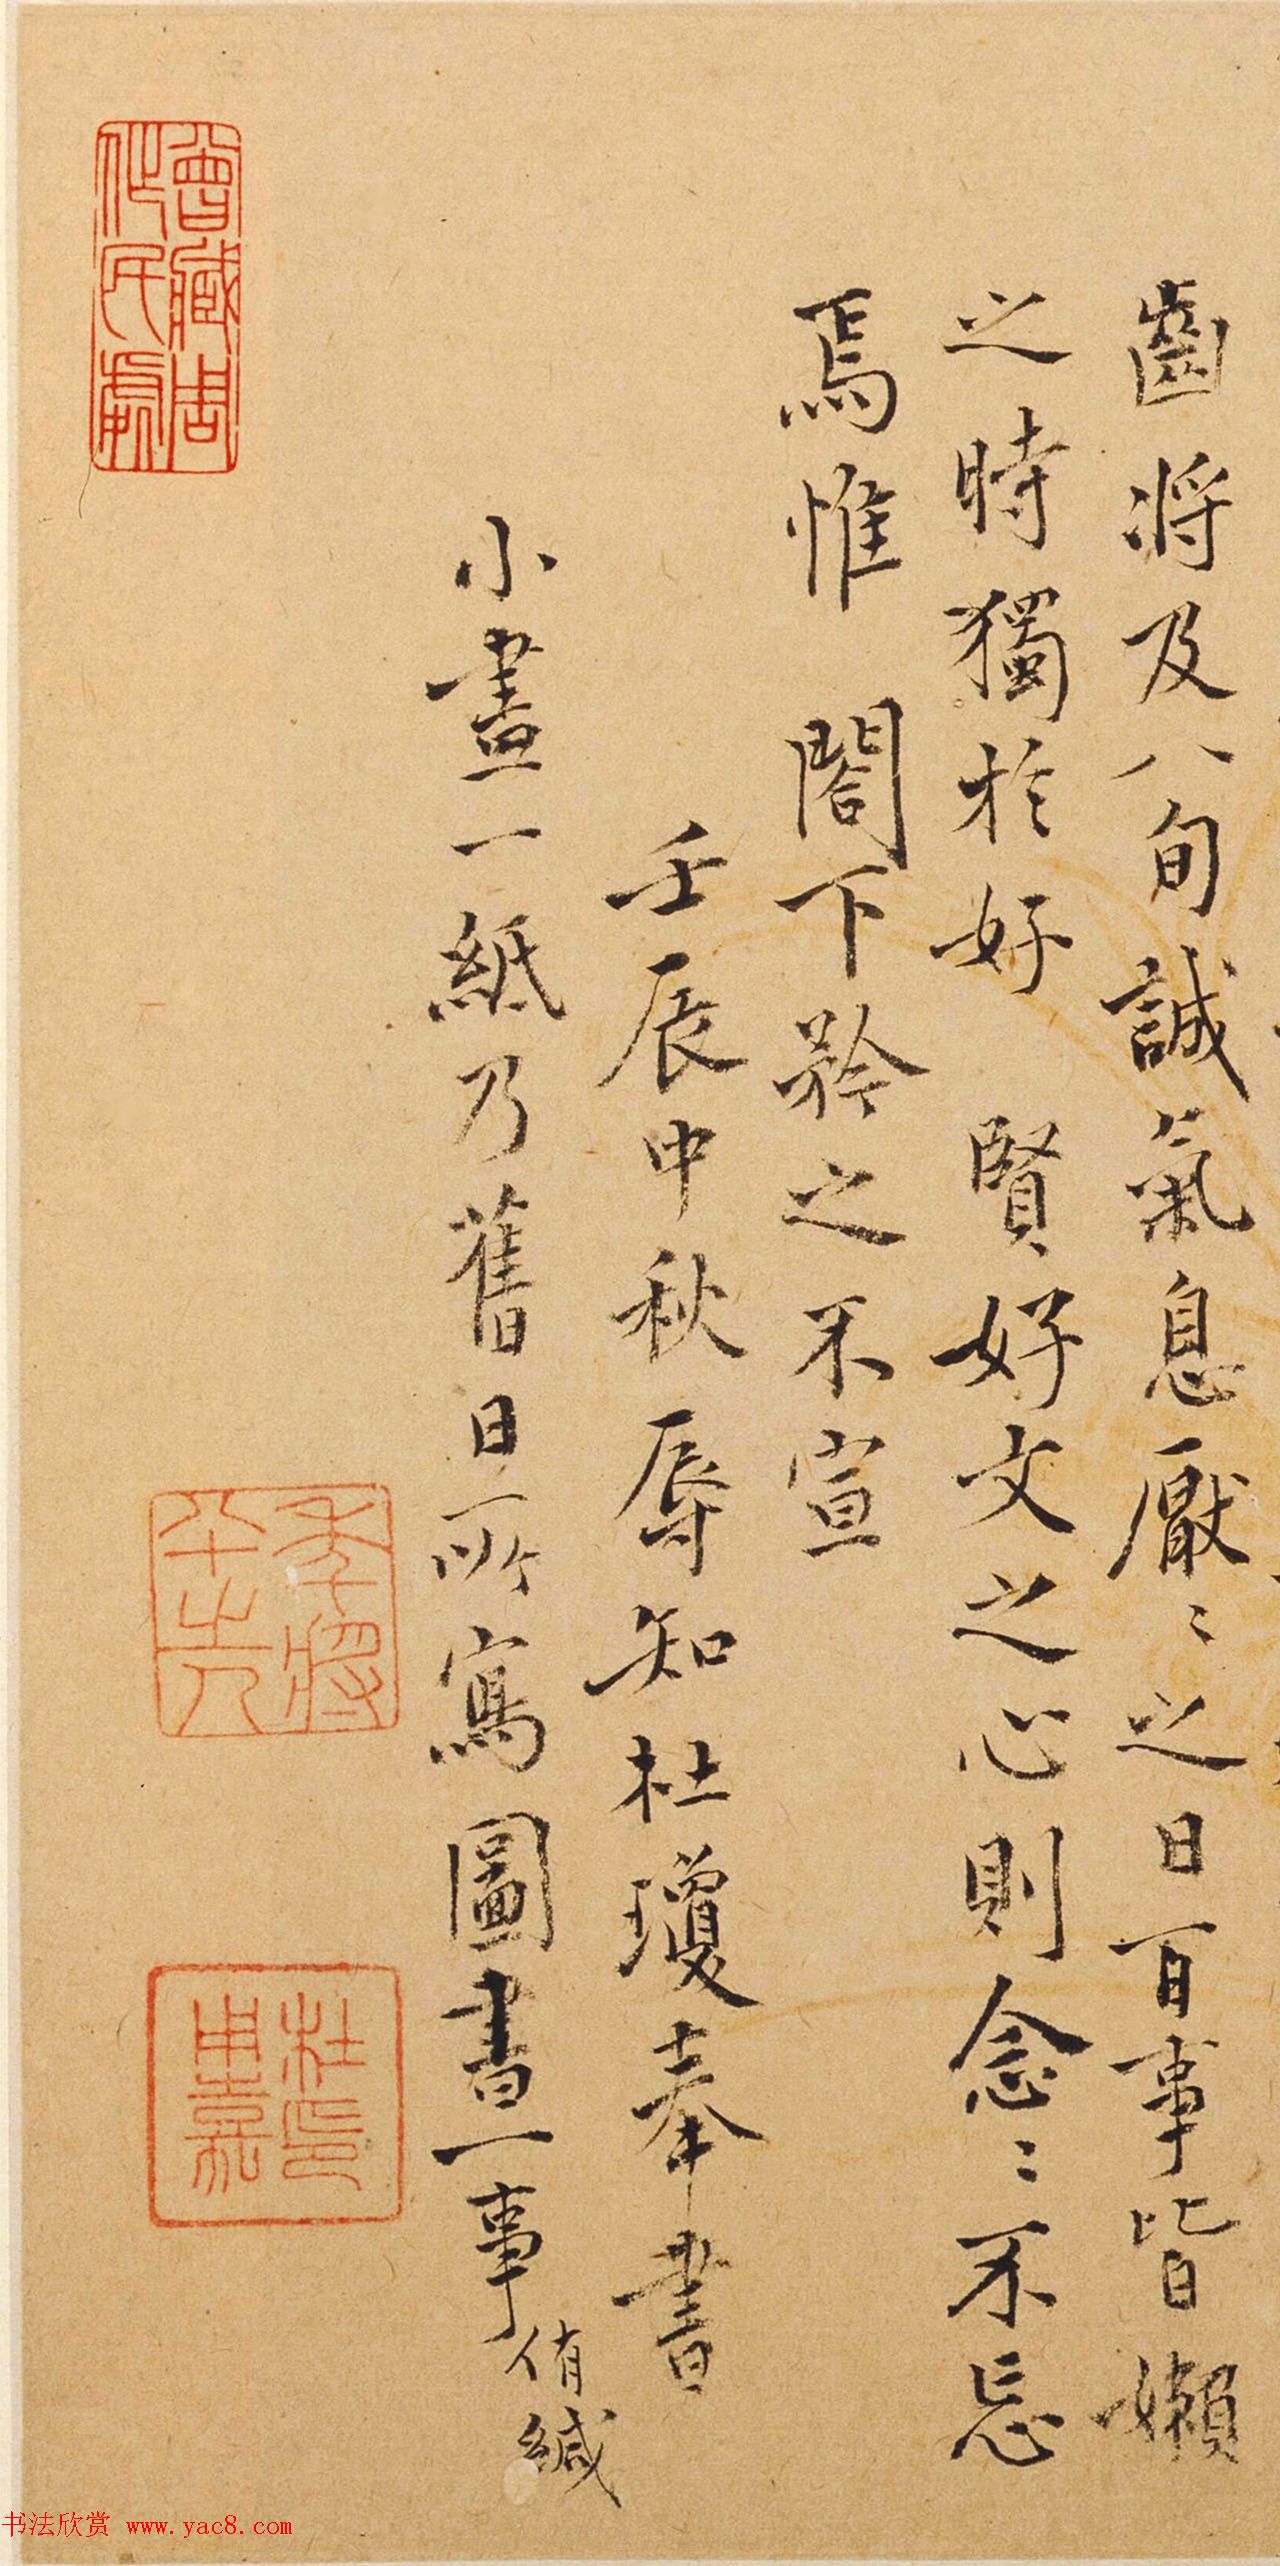 齒將及八旬誠氣息厭〻之日百事皆嬾
之時獨於好 賢好文之心則念〻不忘
焉惟 閤下矜之不宣
壬辰中秋辱知杜瓊奉書
小畫一紙乃舊日所寫圖畫一事侑緘
曾藏周
作民處
年將
八十
杜氏
用嘉
书法欣赏 www.yac8.com